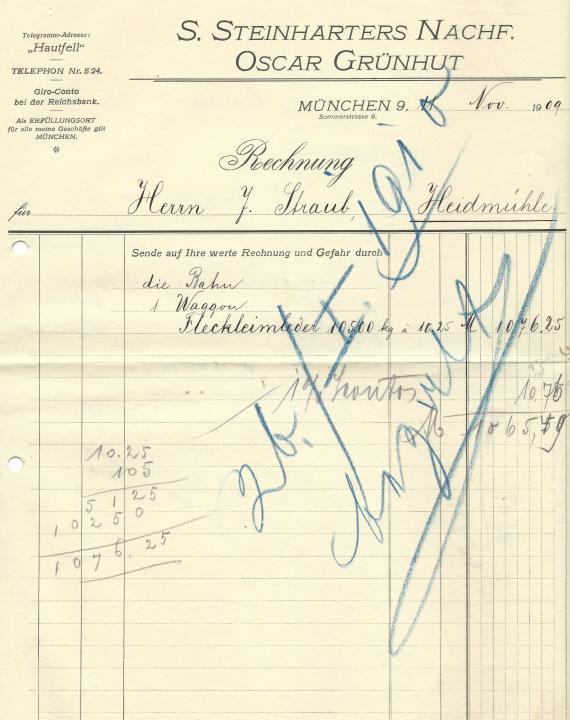 Telegramm-Adresse:
„Hautfell"
TELEPHON Nr. 524.
Giro-Conto
bei der Reichsbank.
Als ERFÜLLUNGSORT
für alle meine Geschäfte gilt
MÜNCHEN.
S. STEINHARTERS NACHF.
OSCAR GRÜNHUT
MÜNCHEN 9, Nov. 1909
Sommerstrasse 9.
Rechnung
für Herrn J. Straub, Heidmühle
Sende auf Ihre werte Rechnung und Gefahr durch
die Bahn
1 Waggon
Fleckleimleder 10500 kg à 10.25 M 1076.25
1% Sconto 10,76
M 1065,49
10.25
105
5125
10250
1076.25
26. I. 1910